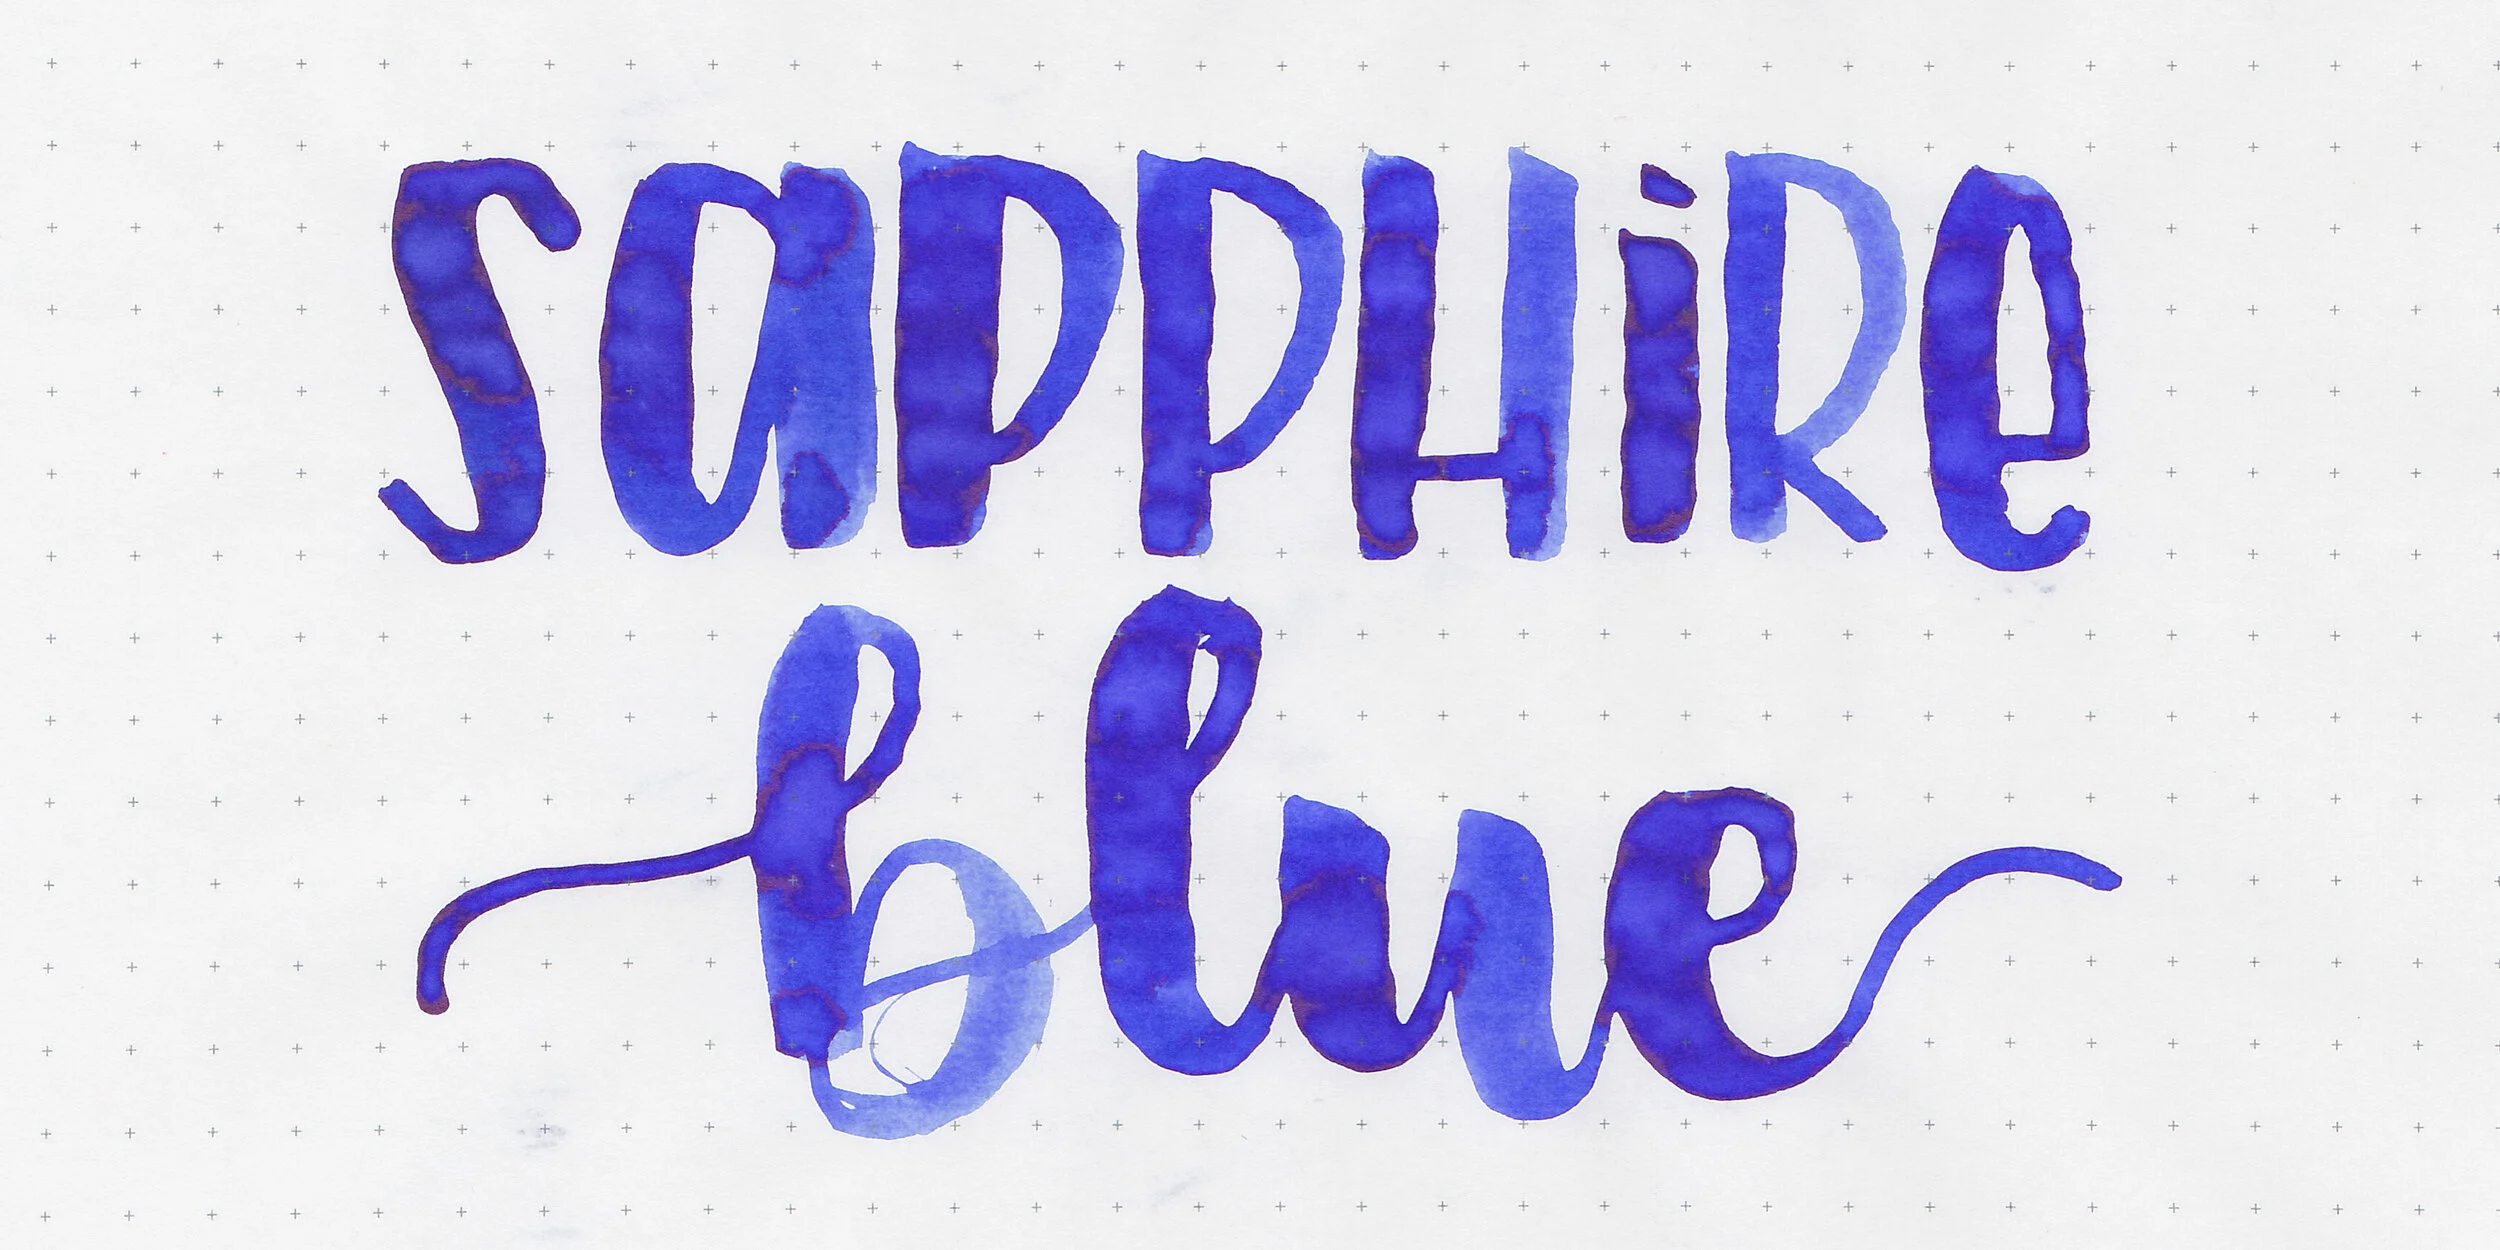 SaPPHiRe
blue